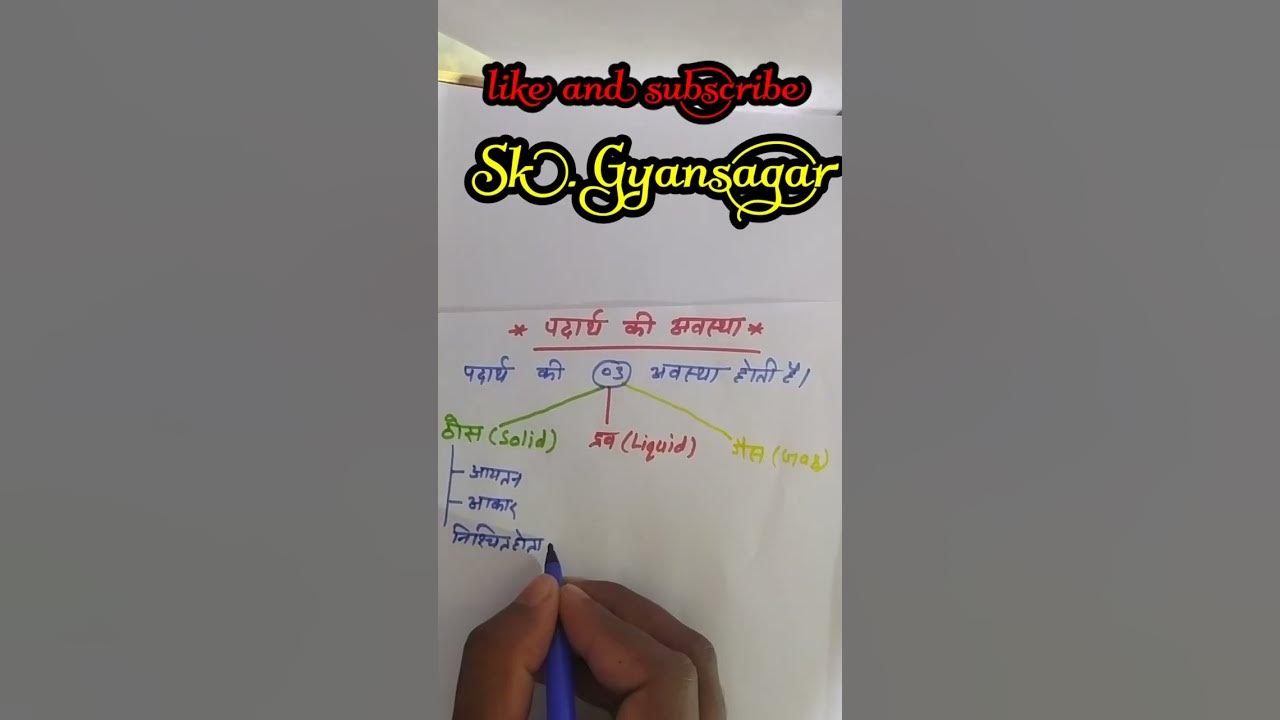 like and subscribe
Sk. Gyansagar
* पदार्थ की अवस्था *
पदार्थ की 03 अवस्था होती है।
ठोस (Solid) द्रव (Liquid) गैस (Gas)
आयतन
आकार
निश्चित होता